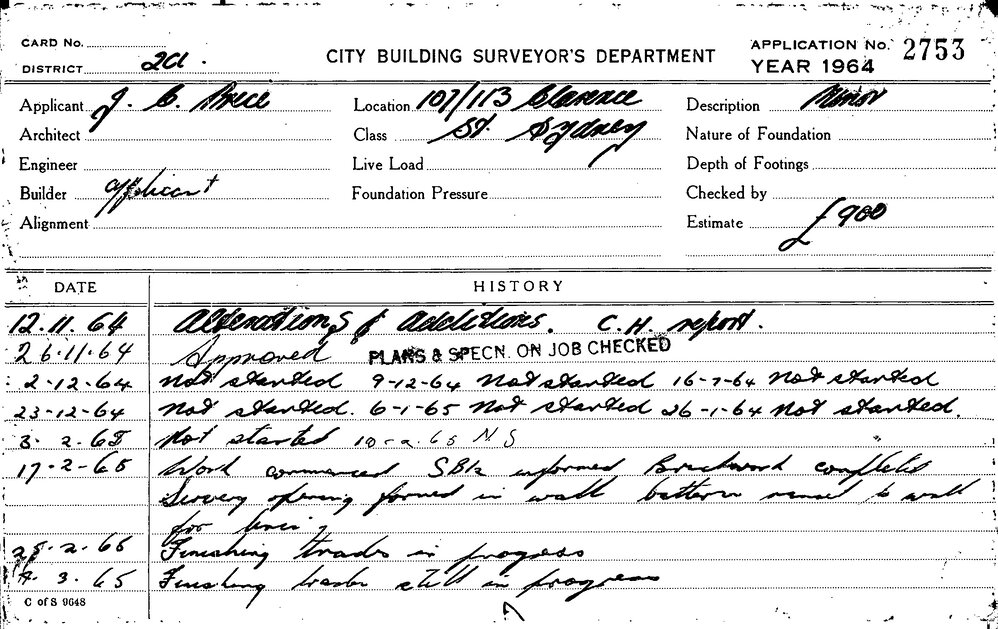 CARD No.
DISTRICT 2a.
CITY BUILDING SURVEYOR'S DEPARTMENT
APPLICATION No. 2753
YEAR 1964
Applicant J. C. Price
Location 107/113 Clarence
Description Minor
Architect
Class St. Sydney
Nature of Foundation
Engineer
Live Load
Depth of Footings
Builder applicant
Foundation Pressure
Checked by
Alignment
Estimate £900
DATE HISTORY
12.11.64 Alterations & additions. C.H. report.
26.11.64 Approved PLANS & SPECN. ON JOB CHECKED
2-12-64 Not started 9-12-64 Not started 16-7-64 Not started
23-12-64 Not started. 6-1-65 Not started 26-1-64 Not started.
3. 2. 65 Not started 10-2.65 N S
17-2-65 Work commenced informed Brickwork
opening formed in wall to wall
for
2.65 Finishing trades in progress
3.65 Finishing trades still in progress
C of S 9648